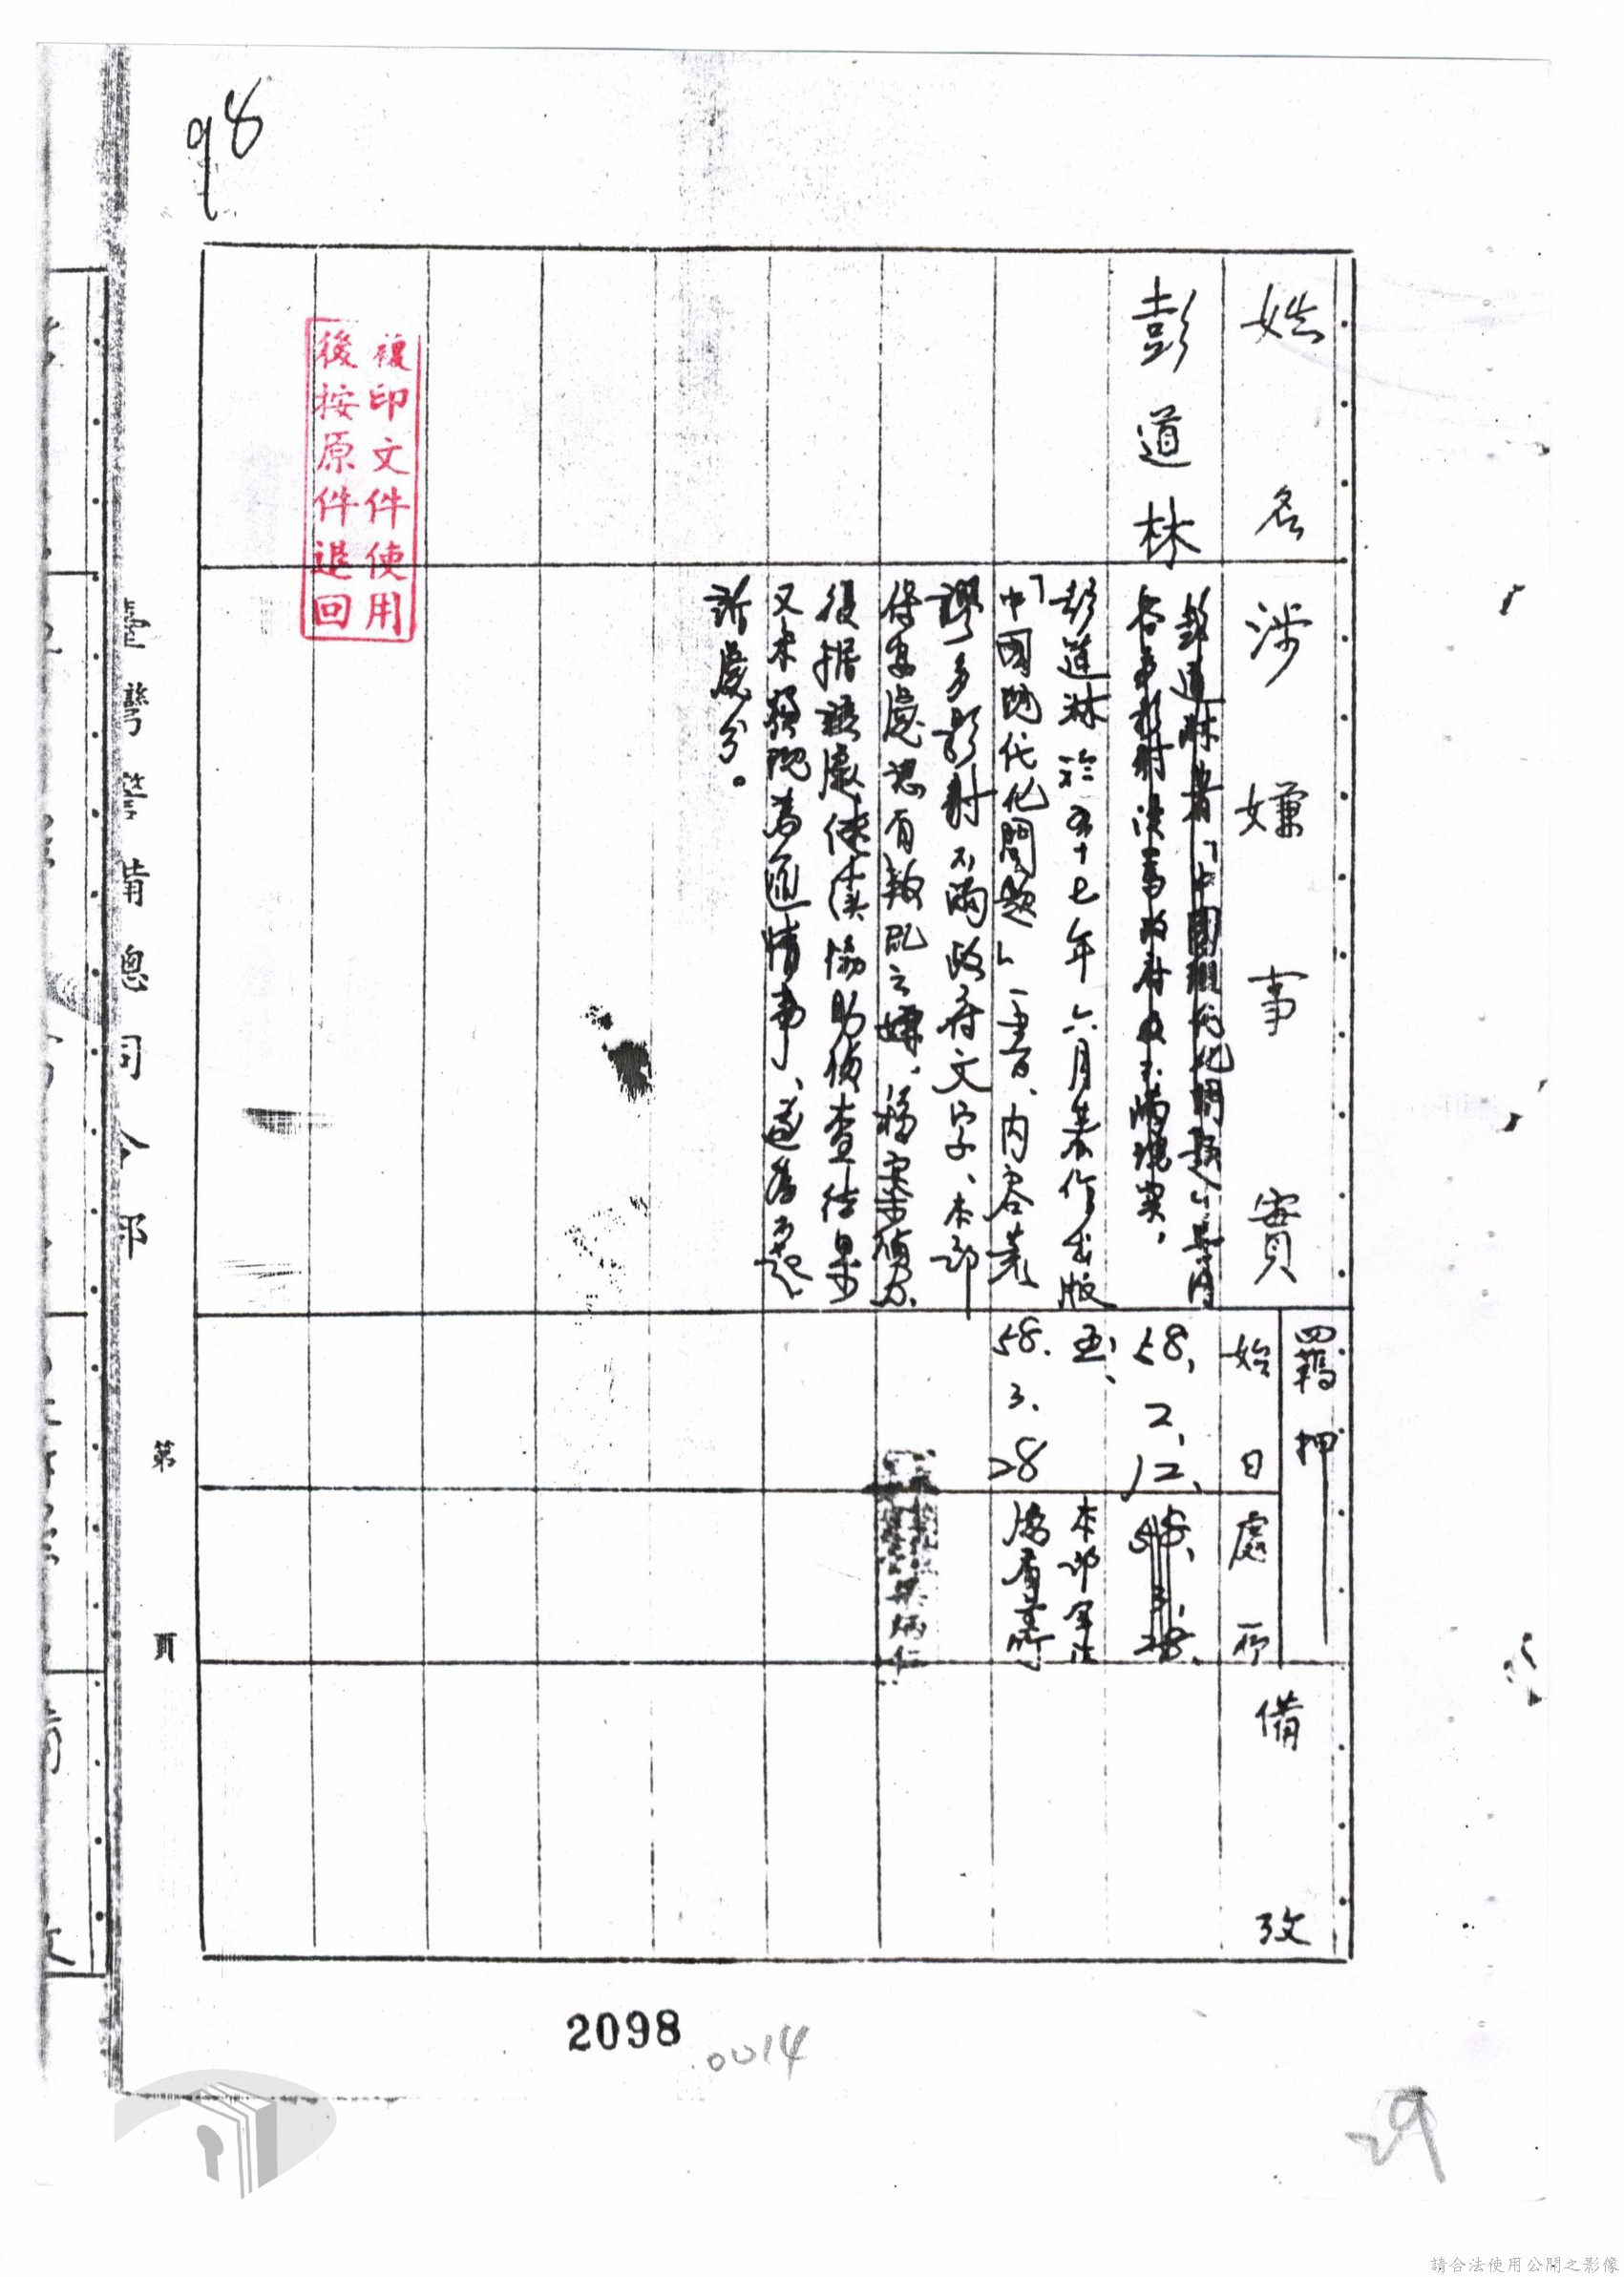 98
姓名
涉嫌事實
羈押
始日
處所
備攷
彭道林
彭道淋著「中國現代化問題」其內
容弟影射諷罵政府及不滿現實。
彭道淋於五十七年六月著作出版
「中國現代化問題」一書、內容荒
謬多影射不滿政府文字、本部
保安處認有叛亂之嫌、移案偵辦、
後據該處續協助偵查結果
又未發現為匪情事、遂為不起
訴處分。
58.2.12.
至
58.3.28
58.3.28.
本部軍法
處看守所
炳仁
複印文件使用
後按原件退回
臺灣警備總司令部
第 頁
2098
0014
29
請合法使用公開之影像